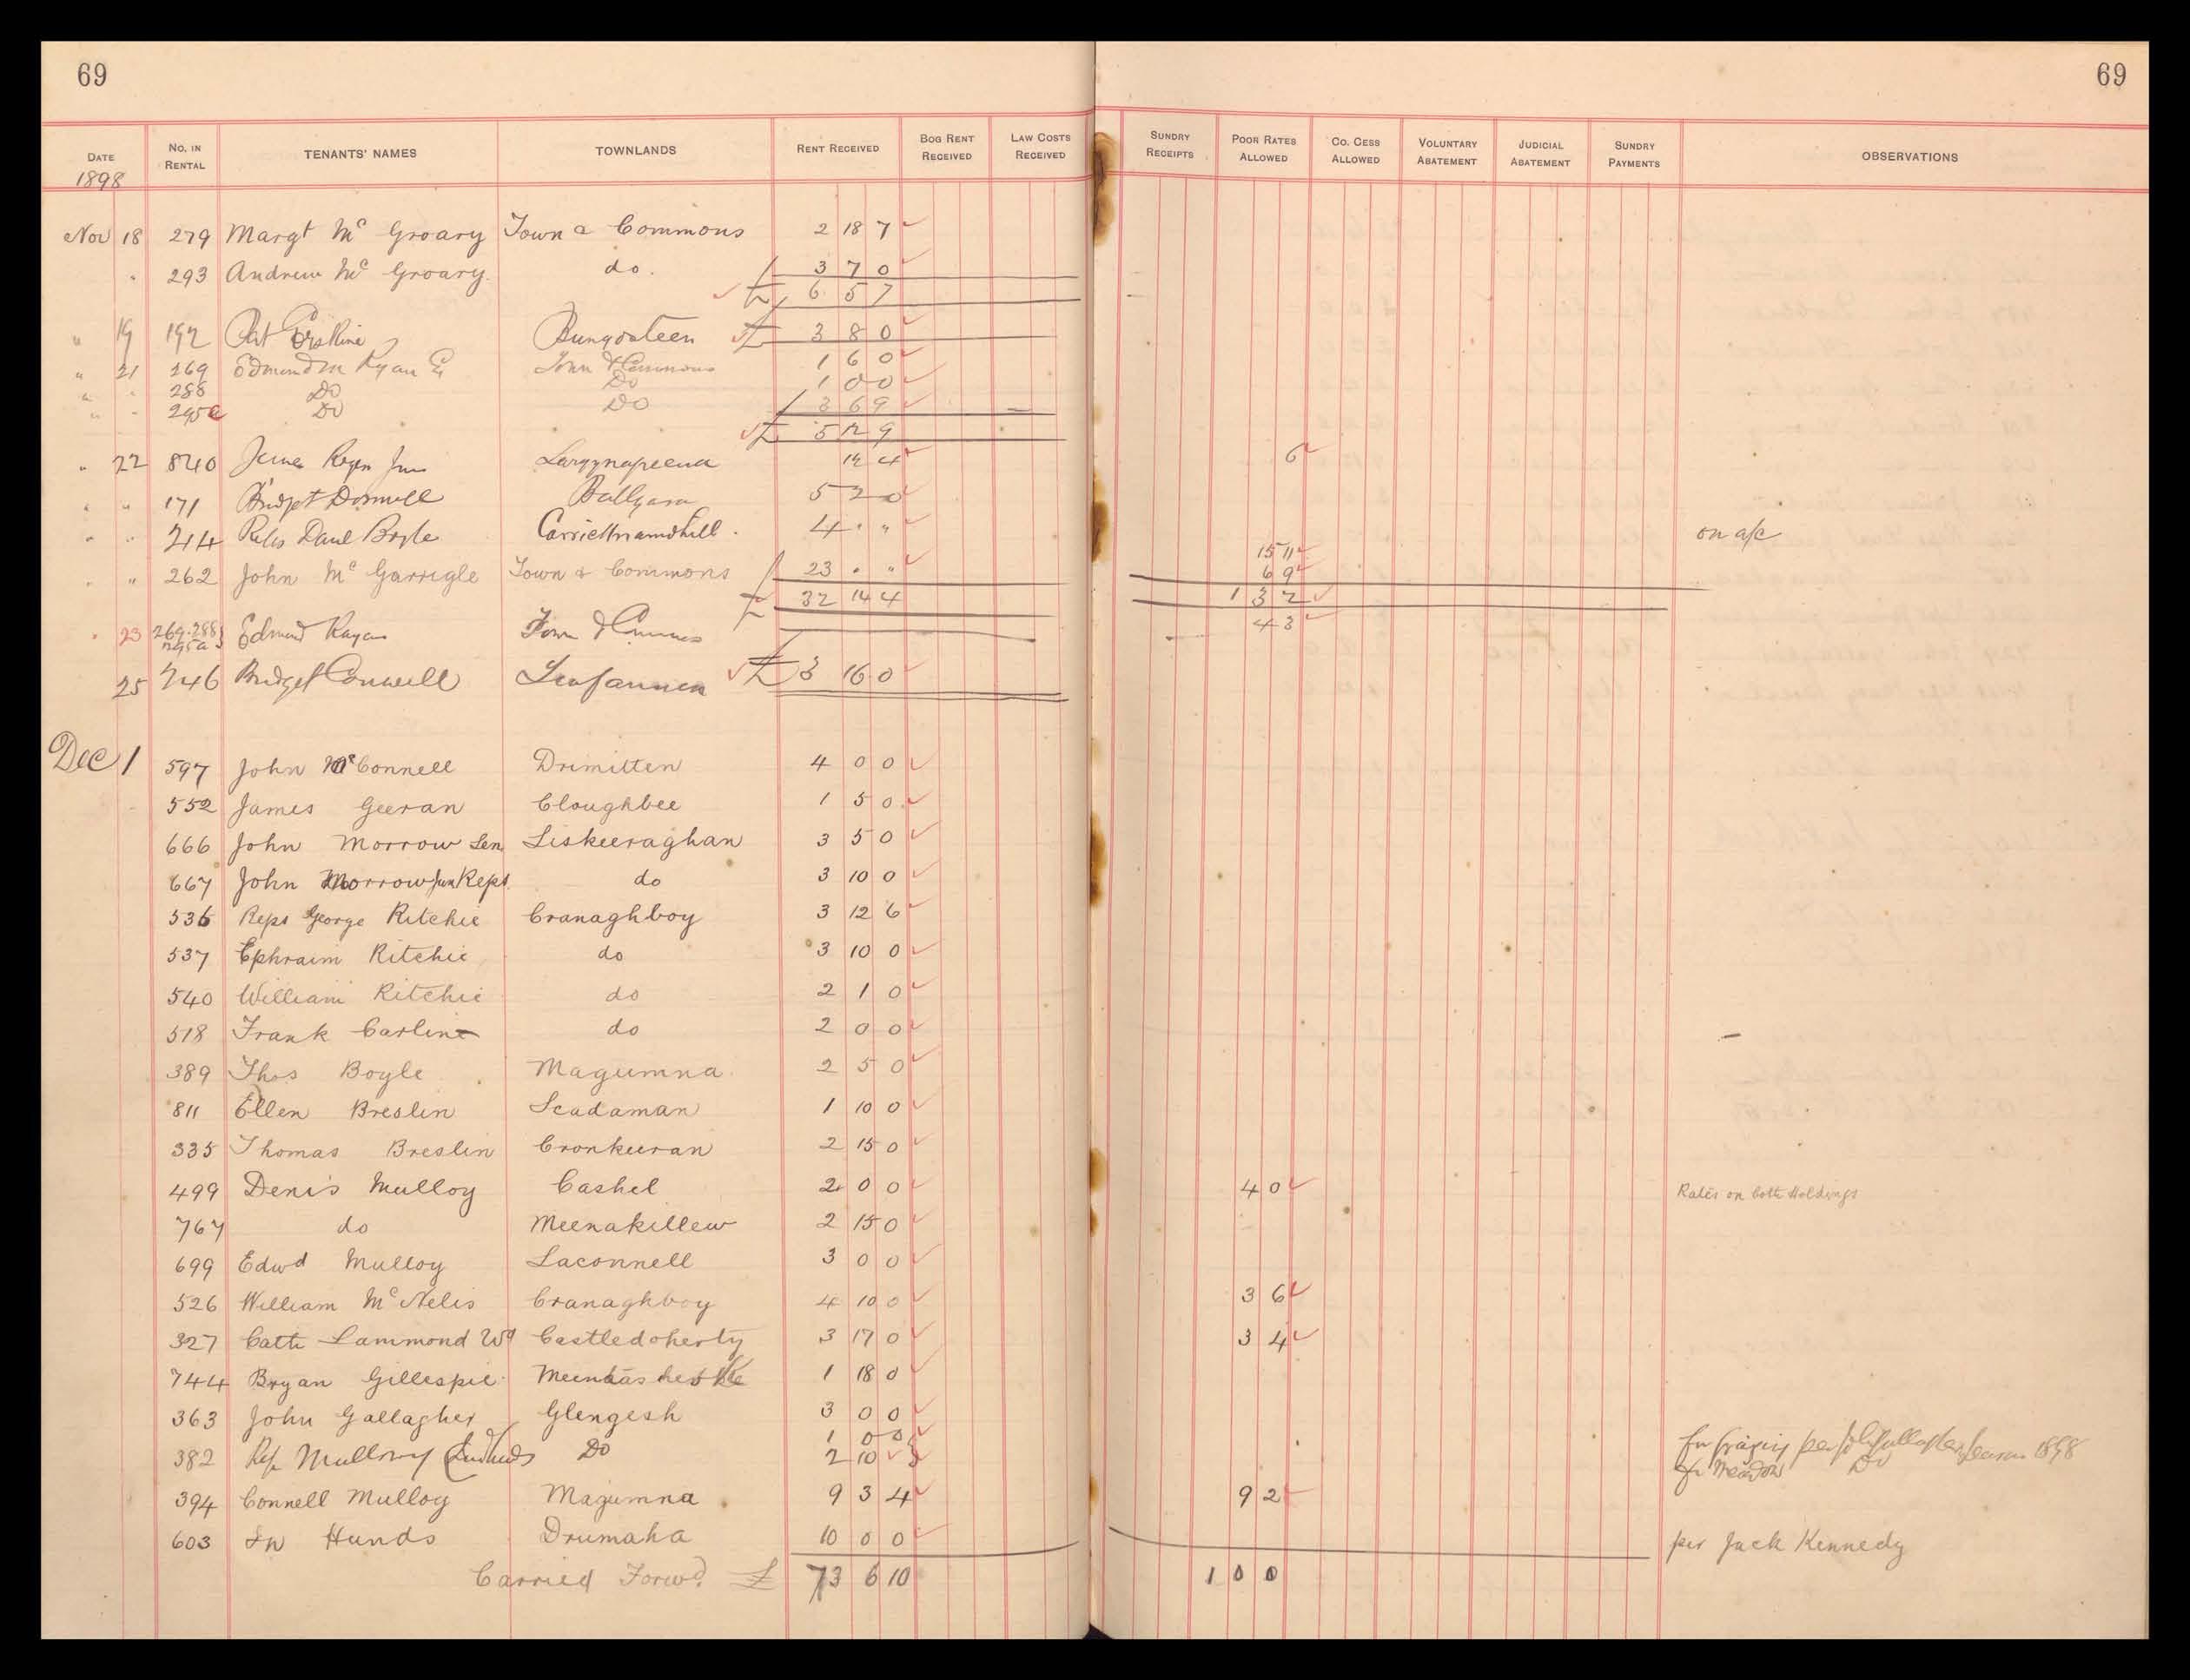 69 69
DATE No. IN RENTAL TENANTS' NAMES TOWNLANDS RENT RECEIVED BOG RENT RECEIVED LAW COSTS RECEIVED SUNDRY RECEIPTS POOR RATES ALLOWED CO. CESS ALLOWED VOLUNTARY ABATEMENT JUDICIAL ABATEMENT SUNDRY PAYMENTS OBSERVATIONS
1898
Nov 18 279 Margt Mc Groary Town & Commons 2 18 7
" 293 Andrew Mc Groary do. 3 7 0
£ 6 5 7
" 19 192 Pat Erskine Bungosteen £ 3 8 0
" 21 269 Edmund Ryan Town & Commons 1 6 0
" " 288 Do Do 1 0 0
" " 295a Do Do 3 6 9
£ 5 12 9
" 22 840 James Jun 12 4 6
" " 171 Bridget 5 2 0
" " 214 Reps Danl Boyle 4 " " on a/c
15 11
" " 262 John Mc Garrigle Town & Commons 23 " " 6 9
£ 32 14 4 1 3 2
" 23 269.288 295a Edmund Ryan Town & Commons 4 3
25 746 Bridget Conwell £ 3 16 0
Dec 1 597 John McConnell Drimitten 4 0 0
552 James Geeran Cloughbee 1 5 0
666 John Morrow Sen Liskeeraghan 3 5 0
667 John Morrow Jun Reps do 3 10 0
536 Reps George Ritchie Cranaghboy 3 12 6
537 Ephraim Ritchie do 3 10 0
540 William Ritchie do 2 1 0
518 Frank Carlin do 2 0 0
389 Thos Boyle Magumna 2 5 0
811 Ellen Breslin Scadaman 1 10 0
335 Thomas Breslin Cronkeeran 2 15 0
499 Denis Mulloy Cashel 2 0 0 4 0 Rates on both Holdings
767 do Meenakillew 2 15 0
699 Edwd Mulloy Laconnell 3 0 0
526 William Mc Nelis Cranaghboy 4 10 0 3 6
327 Cath Lammond Wd Castledoherty 3 17 0 3 4
744 Bryan Gillespie 1 18 0
363 John Gallagher Glengesh 3 0 0
1 0 0 for Grazing per John Gallagher Season 1898
382 Rep Mulloney Do 2 10 for Meadow Do
394 Connell Mulloy Magumna 9 3 4 9 2
603 In Hands Drumaha 10 0 0 per Jack Kennedy
Carried Forwd. £ 73 6 10 1 0 0